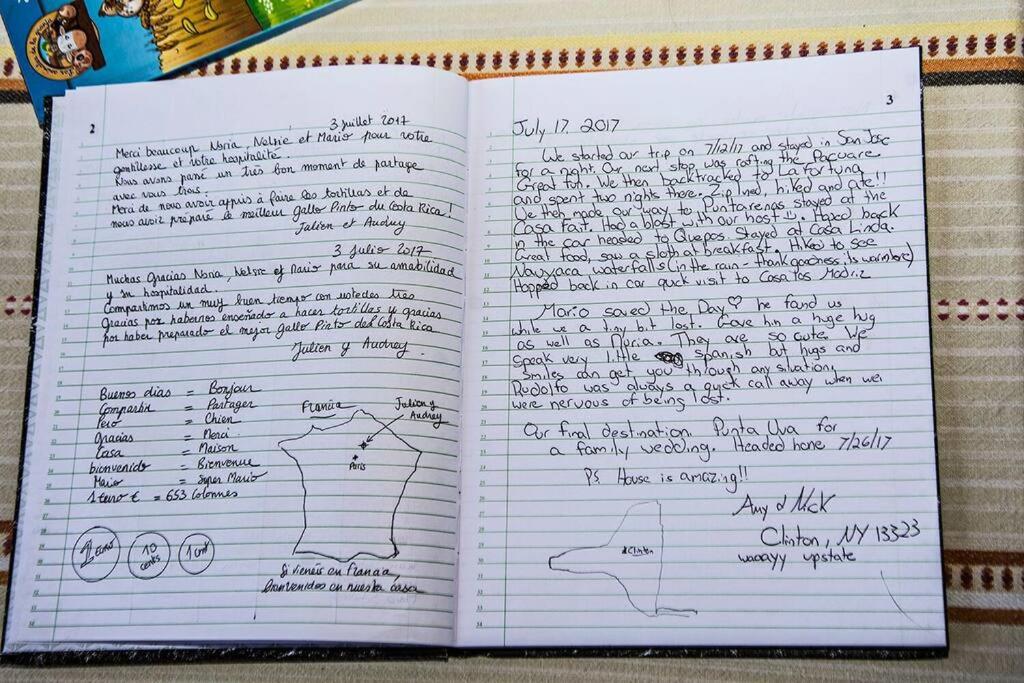 2
3 juillet 2017
Merci beaucoup Noria, Nelsie et Mario pour votre
gentillesse et votre hospitalité.
Nous avons passé un très bon moment de partage
avec vous trois.
Merci de nous avoir appris à faire les tortillas et de
nous avoir préparé le meilleur gallo Pinto du Costa Rica !
Julien et Audrey
3 Julio 2017
Muchas Gracias Noria, Nelsie y Mario para su amabilidad
y su hospitalidad.
Compartimos un muy buen tiempo con ustedes tres
Gracias por habernos enseñado a hacer tortillas y gracias
por haber preparado el mejor gallo Pinto del Costa Rica
Julien y Audrey.
Buenos dias = Bonjour
Compartir = Partager
Pero = Chien
Gracias = Merci
Casa = Maison
bienvenido = Bienvenue
Mario = Super Mario
1 euro € = 653 Colonnes
Francia
Julien y
Audrey
Paris
1 Euro
10
cents
1 cent
Si vienen en Francia,
bienvenidos en nuestra casa
3
July 17. 2017
We started our trip on 7/12/17 and stayed in San Jose
for a night. Our next stop was rafting the Pacuare.
Great fun. We then backtracked to La Fortuna
and spent two nights there. Zip lined, hiked and ate!!
We then made our way to Puntarenas stayed at the
Casa Fait. Had a blast with our host. Hoped back
in the car headed to Quepos. Stayed at Casa Linda.
Great food, saw a sloth at breakfast. Hiked to see
Nauyaca waterfalls (in the rain - thank goodness its warm here)
Hopped back in car quick visit to Casa Tas Madriz
Mario saved the Day ♡ he found us
while we a tiny bit lost. Gave him a huge hug
as well as Nuria. They are so cute. We
speak very little spanish but hugs and
smiles can get you through any situation,
Rudolfo was always a quck call away when wei
were nervous of being lost.
Our final destination. Punta Uva for
a family wedding. Headed home 7/26/17
P.S. House is amazing!!
Amy & Nick
Clinton, NY 13323
waaayy upstate
Clinton